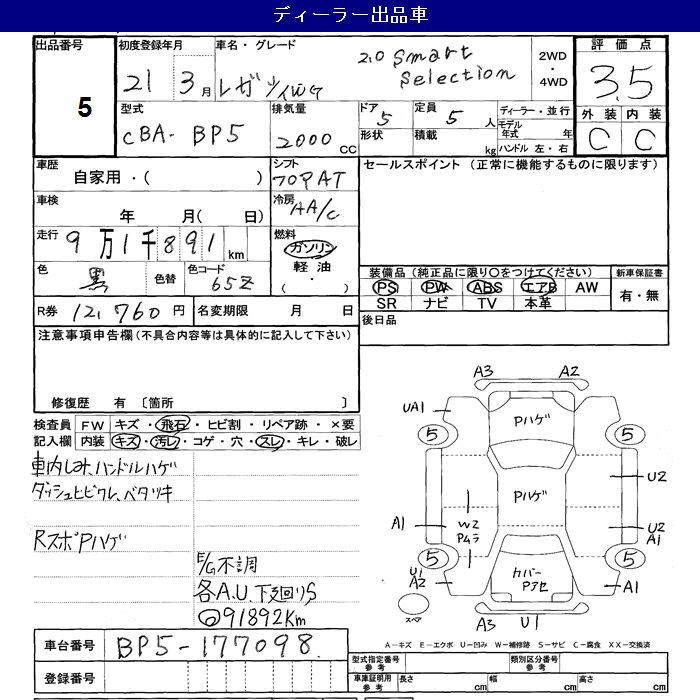 ディーラー出品車
出品番号 5
初度登録年月 21 3月
車名・グレード レガツィWG 2.0 Smart Selection
2WD・4WD
評価点 3.5
外装 C 内装 C
型式 CBA- BP5
排気量 2000 CC
ドア 5 形状
定員 5 人 積載 kg
ディーラー・並行
モデル年式 年
ハンドル 左・右
車歴 自家用・( )
シフト フロアAT
車検 年 月( 日)
冷房 AA/C
走行 9万1千891 km
燃料 ガソリン 軽油 ( ・ )
色 黒 色替 色コード 65Z
R券 12,760 円 名変期限 月 日
セールスポイント (正常に機能するものに限ります)
装備品(純正品に限り○をつけてください)
PS PW ABS エアB AW
SR ナビ TV 本革
新車保証書 有・無
後日品
注意事項申告欄(不具合内容等は具体的に記入して下さい)
修復歴 有 〔箇所 〕
検査員記入欄
FW キズ・飛石・ヒビ割・リペア跡・×要
内装 キズ・汚レ・コゲ・穴・スレ・キレ・破レ
車内しみ、ハンドルハゲ
ダッシュヒビワレ、ベタツキ
RスポPハゲ
E/G不調
各A.U.下廻りS
◎91892Km
A3 A2
UA1 Pハゲ
5 5
Pハゲ U2
A1 W2 Pムラ U2 A1
5 5
U1 A2 カバーPアセ A1
スペア A3 U1
A-キズ E-エクボ U-凹み W-補修跡 S-サビ C-腐食 XX-交換済
車台番号 BP5-177098
登録番号
型式指定番号 参考 類別区分番号 参考
車庫証明用 参考 長さ cm 幅 cm 高さ cm